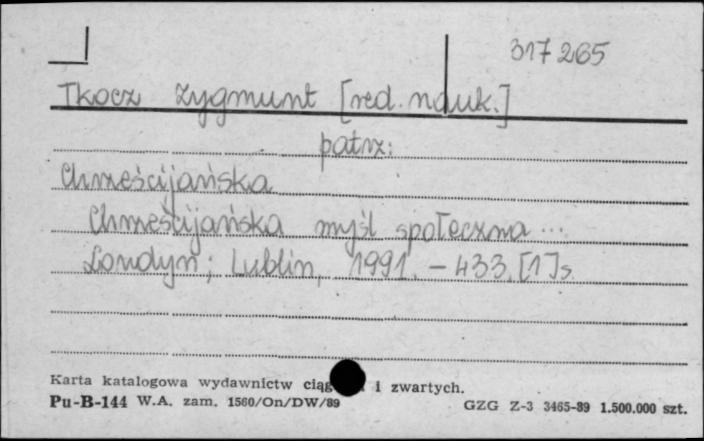 317265
Tkocz Zygmunt [red. nauk.]
patrz:
Chrześcijańska
Chrześcijańska myśl społeczna ...
Londyn; Lublin, 1991. – 433, [1] s.
Karta katalogowa wydawnictw ciąg i zwartych.
Pu-B-144 W.A. zam. 1560/On/DW/89
GZG Z-3 3465-89 1.500.000 szt.